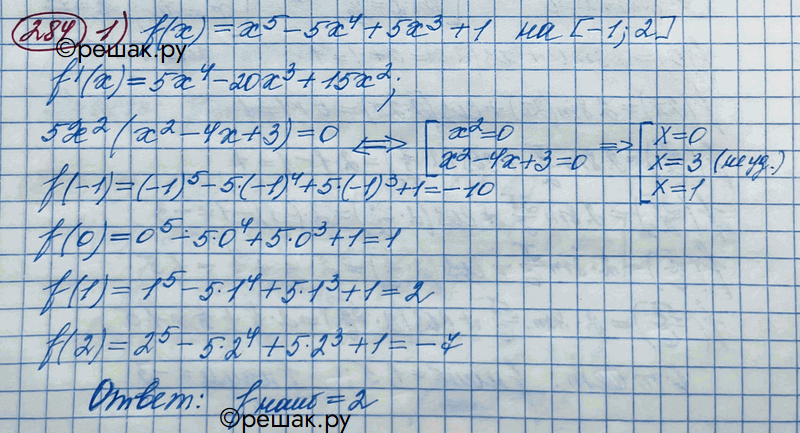 284 1) f(x) = x⁵ - 5x⁴ + 5x³ + 1 на [-1; 2]
©решак.ру
f'(x) = 5x⁴ - 20x³ + 15x²;
5x² (x² - 4x + 3) = 0 ⟺ [ x² = 0 x² - 4x + 3 = 0 ⇒ [ x = 0 x = 3 (не уд.) x = 1
f(-1) = (-1)⁵ - 5·(-1)⁴ + 5·(-1)³ + 1 = -10
f(0) = 0⁵ - 5·0⁴ + 5·0³ + 1 = 1
f(1) = 1⁵ - 5·1⁴ + 5·1³ + 1 = 2
f(2) = 2⁵ - 5·2⁴ + 5·2³ + 1 = -7
Ответ: f наиб = 2
©решак.ру